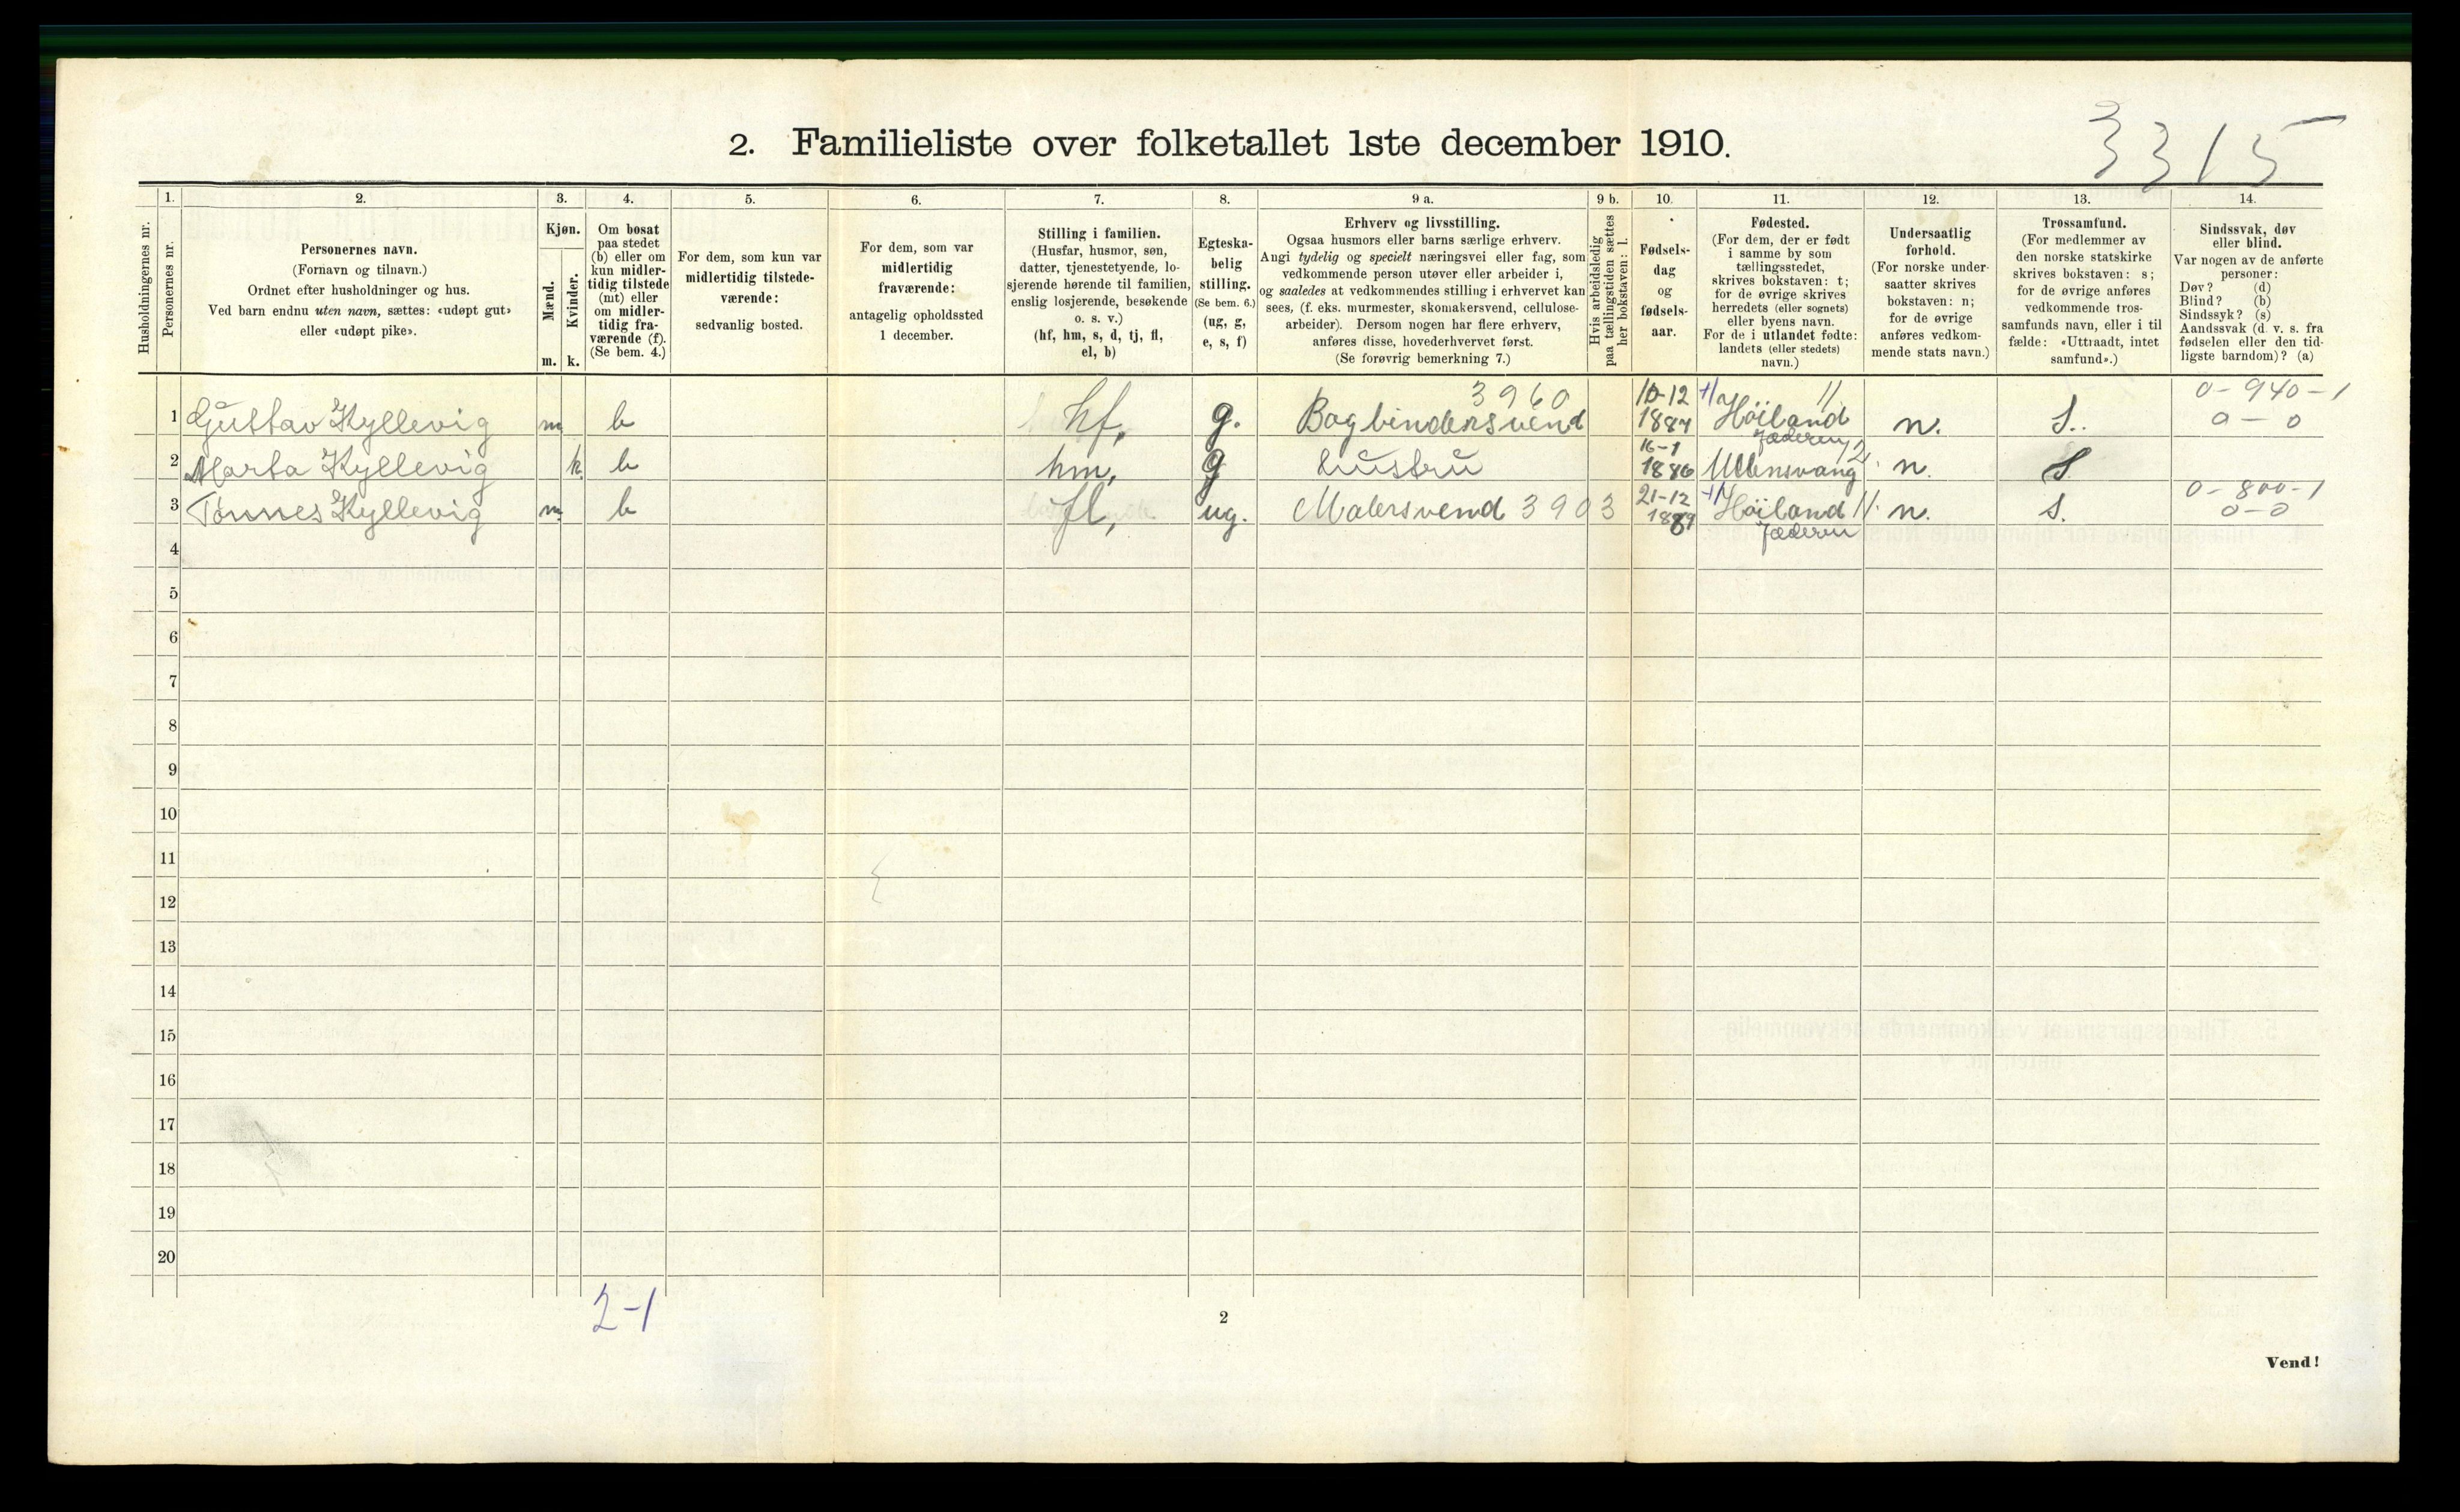 3315
2. Familieliste over folketallet 1ste december 1910.
Husholdningernes nr.
1.
Personernes nr.
2.
Personernes navn.
(Fornavn og tilnavn.)
Ordnet efter husholdninger og hus.
Ved barn endnu uten navn, sættes: «udøpt gut»
eller «udøpt pike».
3.
Kjøn.
Mænd.
m.
Kvinder.
k.
4.
Om bosat
paa stedet
(b) eller om
kun midler-
tidig tilstede
(mt) eller
om midler-
tidig fra-
værende (f).
(Se bem. 4.)
5.
For dem, som kun var
midlertidig tilstede-
værende:
sedvanlig bosted.
6.
For dem, som var
midlertidig
fraværende:
antagelig opholdssted
1 december.
7.
Stilling i familien.
(Husfar, husmor, søn,
datter, tjenestetyende, lo-
sjerende hørende til familien,
enslig losjerende, besøkende
o. s. v.)
(hf, hm, s, d, tj, fl,
el, b)
8.
Egteska-
belig
stilling.
(Se bem. 6.)
(ug, g,
e, s, f)
9 a.
Erhverv og livsstilling.
Ogsaa husmors eller barns særlige erhverv.
Angi tydelig og specielt næringsvei eller fag, som
vedkommende person utøver eller arbeider i,
og saaledes at vedkommendes stilling i erhvervet kan
sees, (f. eks. murmester, skomakersvend, cellulose-
arbeider). Dersom nogen har flere erhverv,
anføres disse, hovederhvervet først.
(Se forøvrig bemerkning 7.)
9 b.
Hvis arbeidsledig
paa tællingstiden sættes
her bokstaven: l.
10.
Fødsels-
dag
og
fødsels-
aar.
11.
Fødested.
(For dem, der er født
i samme by som
tællingsstedet,
skrives bokstaven: t;
for de øvrige skrives
herredets (eller sognets)
eller byens navn.
For de i utlandet fødte:
landets (eller stedets)
navn.)
12.
Undersaatlig
forhold.
(For norske under-
saatter skrives
bokstaven: n;
for de øvrige
anføres vedkom-
mende stats navn.)
13.
Trossamfund.
(For medlemmer av
den norske statskirke
skrives bokstaven: s;
for de øvrige anføres
vedkommende tros-
samfunds navn, eller i til
fælde: «Uttraadt, intet
samfund».)
14.
Sindssvak, døv
eller blind.
Var nogen av de anførte
personer:
Døv? (d)
Blind? (b)
Sindssyk? (s)
Aandssvak (d. v. s. fra
fødselen eller den tid-
ligste barndom)? (a)
3960 10-12 11 0-940-1
1 Gustav Kyllevig m b hf, g. Bogbindersvend 1887 Höiland n. S. 0-0
Jæderen
16-1
2 Marta Kyllevig k b hm, g hustru 1886 Ullensvang n. S
21-12 0-800-1
3 Tönnes Kyllevig m b fl, ug. Malersvend 3903 1889 Höiland 11. n. S. 0-0
Jæderen
4
5
6
7
8
9
10
11
12
13
14
15
16
17
18
19
20
2-1
2
Vend!